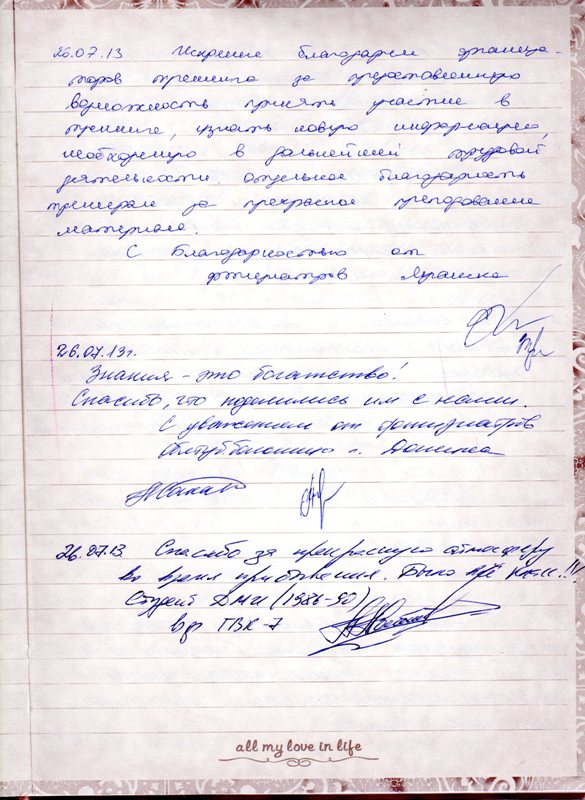 26.07.13 Искренне благодарим организа-
торов тренинга за предоставленную
возможность принять участие в
тренинге, узнать новую информацию,
необходимую в дальнейшей трудовой
деятельности. Отдельное благодарность
тренерам за прекрасное преподавание
материала.
С благодарностью от
фтизиатров
26.07.13г.
Знания - это богатство!
Спасибо, что поделились им с нами.
С уважением от фтизиатров
г. Донецка
26.07.13 Спасибо за прекрасную атмосферу
во время пребывания. Было всё !!!
Студент ДМИ (1986-90)
вр ГВК-7
all my love in life